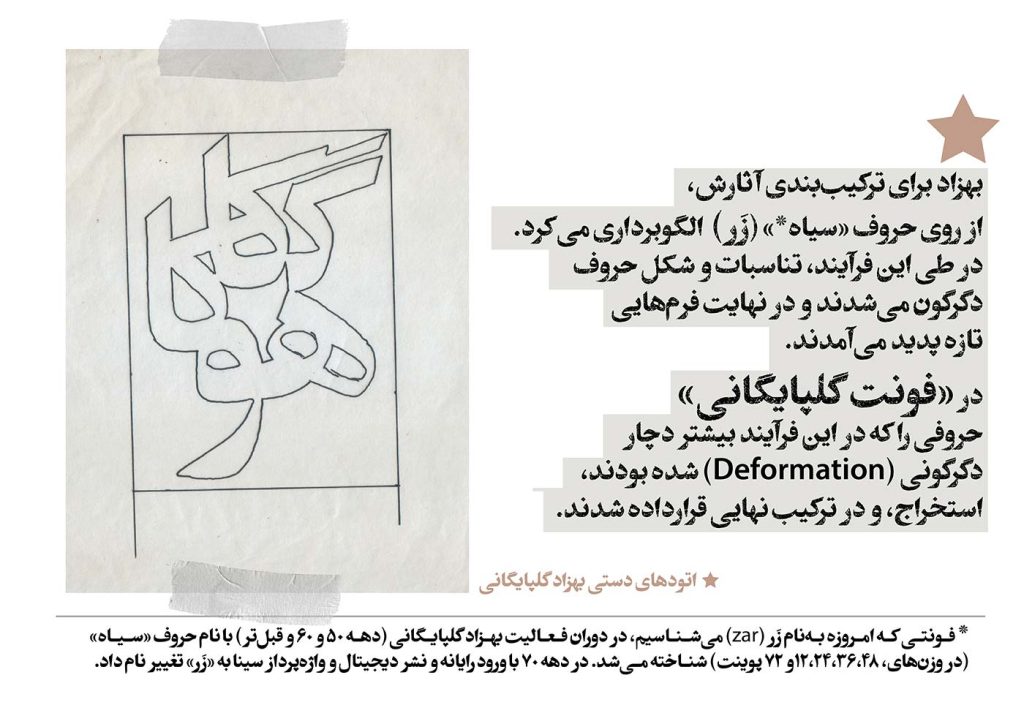 بهزاد برای ترکیب‌بندی آثارش،
از روی حروف «سیاه*» (زَر) الگوبرداری می‌کرد.
در طی این فرآیند، تناسبات و شکل حروف
دگرگون می‌شدند و در نهایت فرم‌هایی
تازه پدید می‌آمدند.
در «فونت گلپایگانی»
حروفی را که در این فرآیند بیشتر دچار
دگرگونی (Deformation) شده بودند،
استخراج، و در ترکیب نهایی قرار داده شدند.
★ اتودهای دستی بهزاد گلپایگانی
* فونتی که امروزه به‌نام زَر (zar) می‌شناسیم، در دوران فعالیت بهزاد گلپایگانی (دهه ۵۰ و ۶۰ و قبل‌تر) با نام حروف «سیاه»
(در وزن‌های، ۱۲،۲۴،۳۶،۴۸و ۷۲ پوینت) شناخته می‌شد. در دهه ۷۰ با ورود رایانه و نشر دیجیتال و واژه‌پرداز سینا به «زَر» تغییر نام داد.